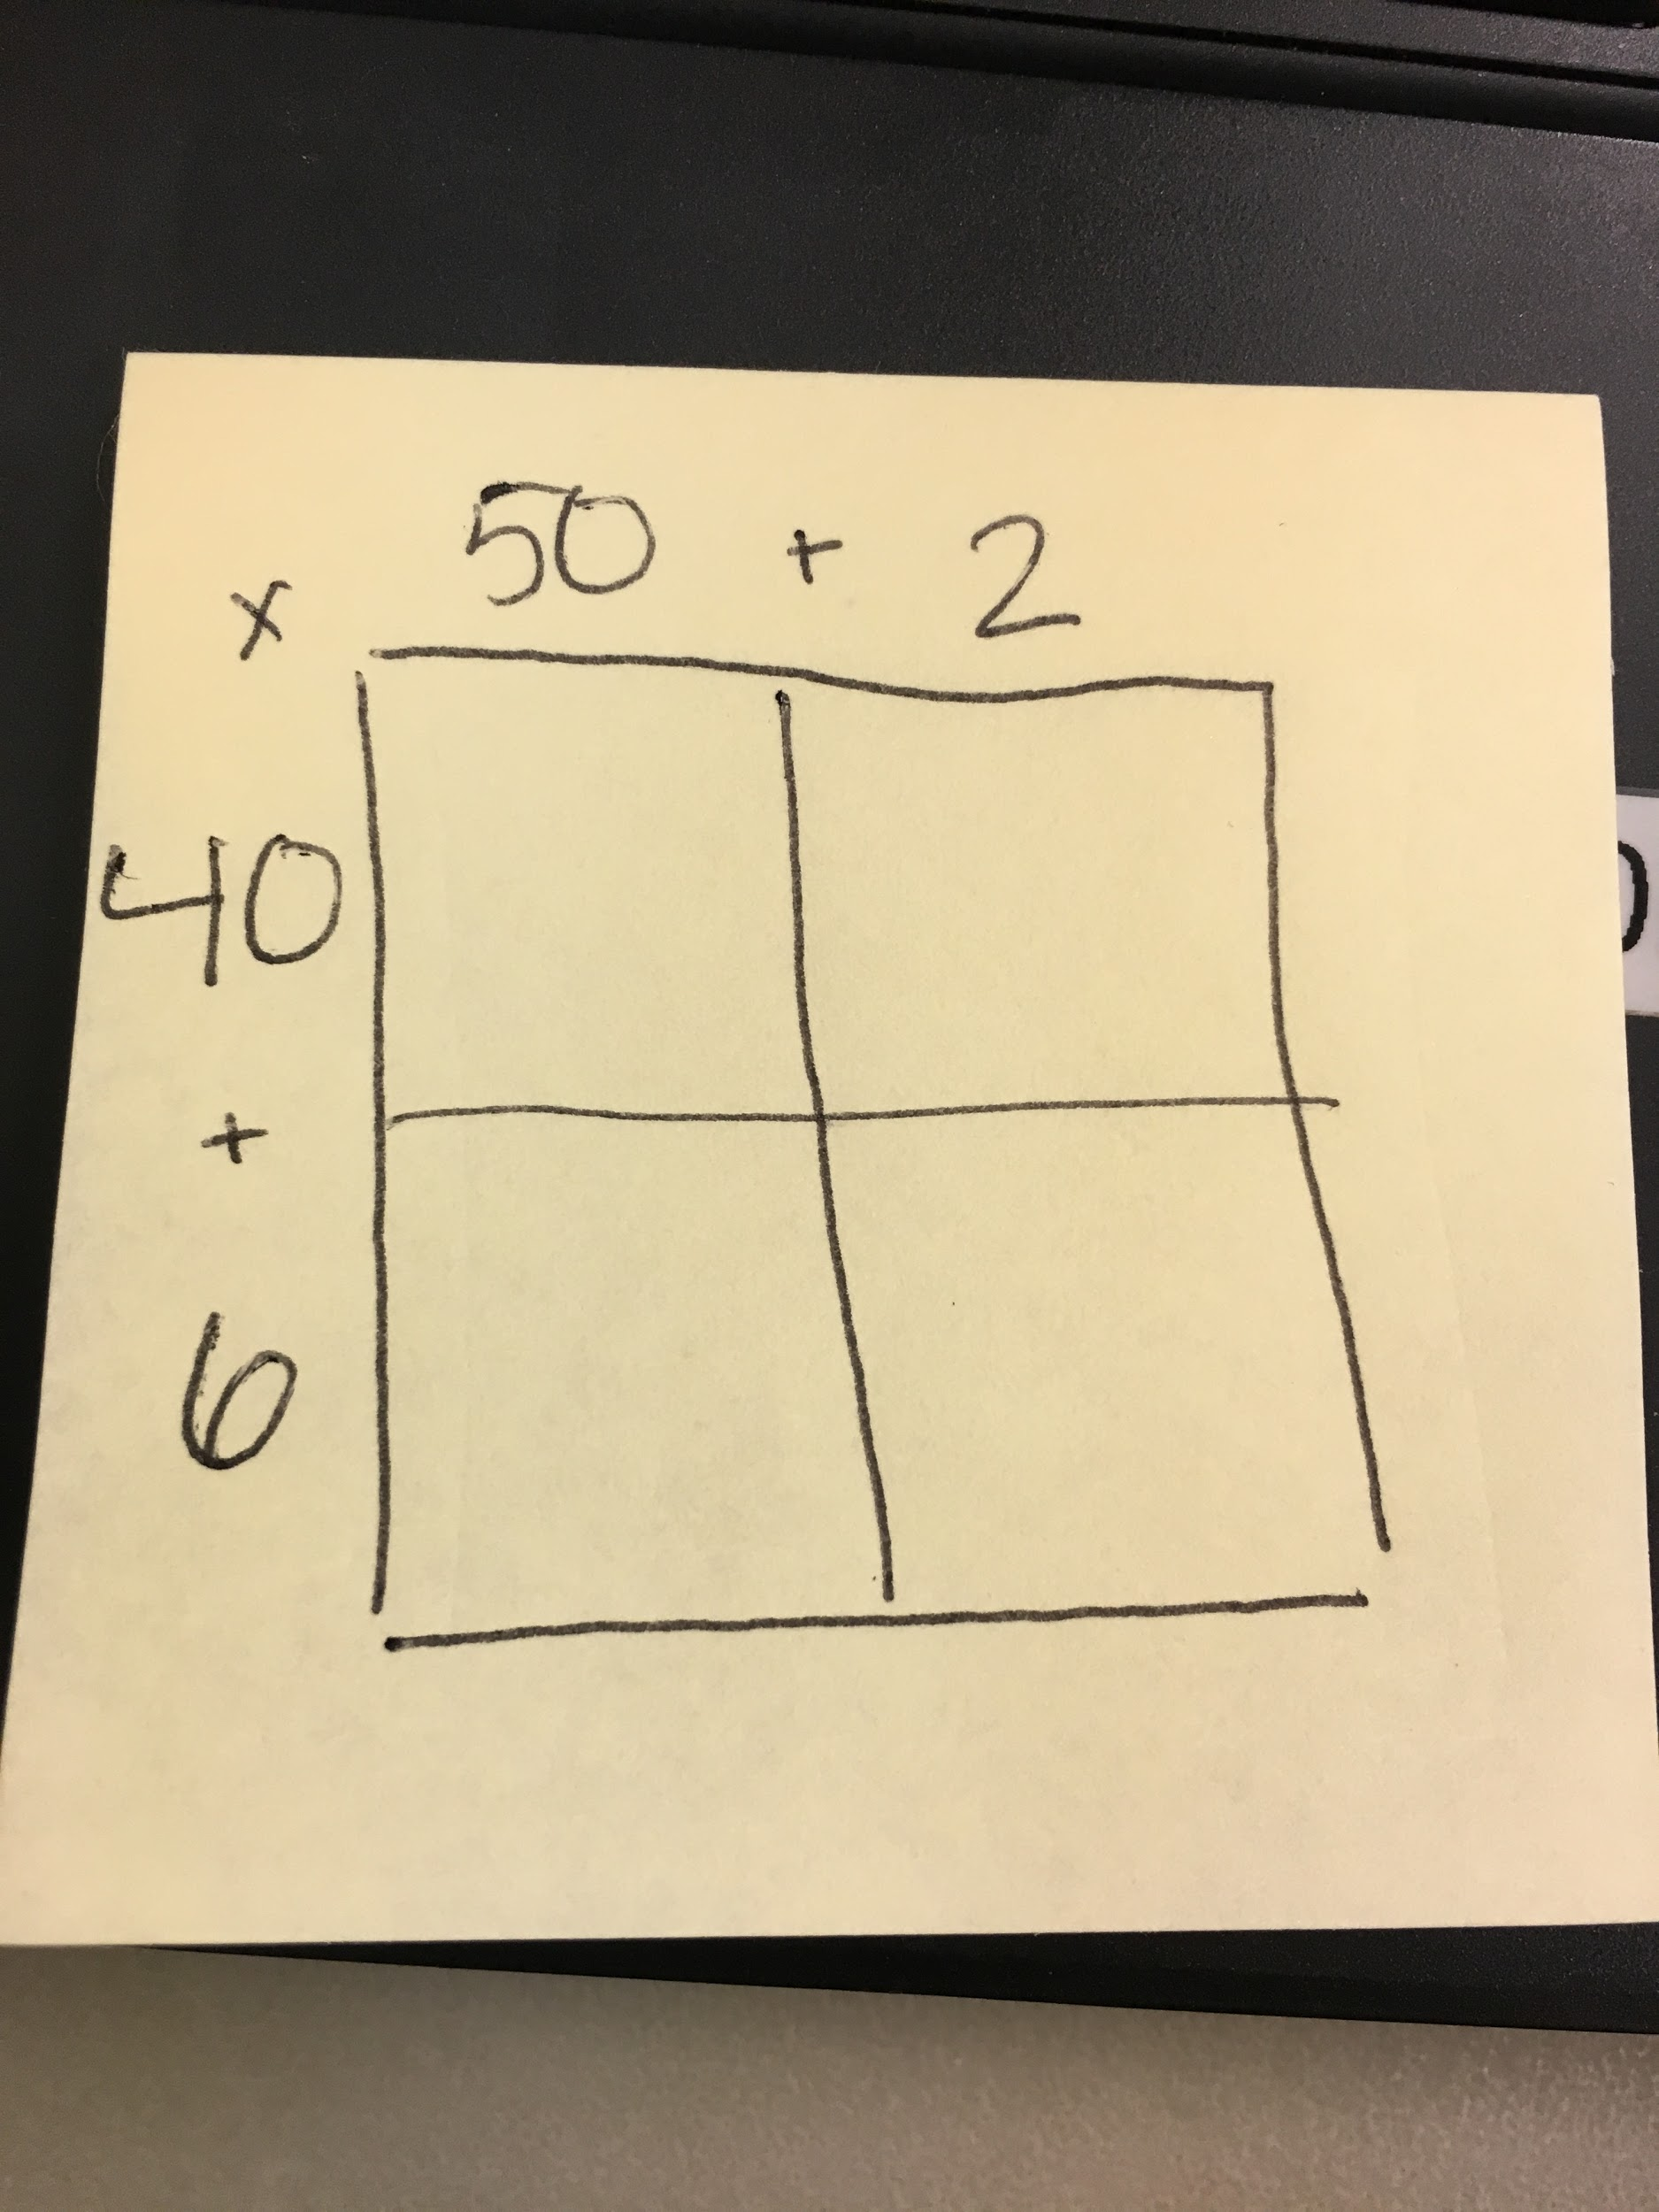 50 + 2
x
40
+
6